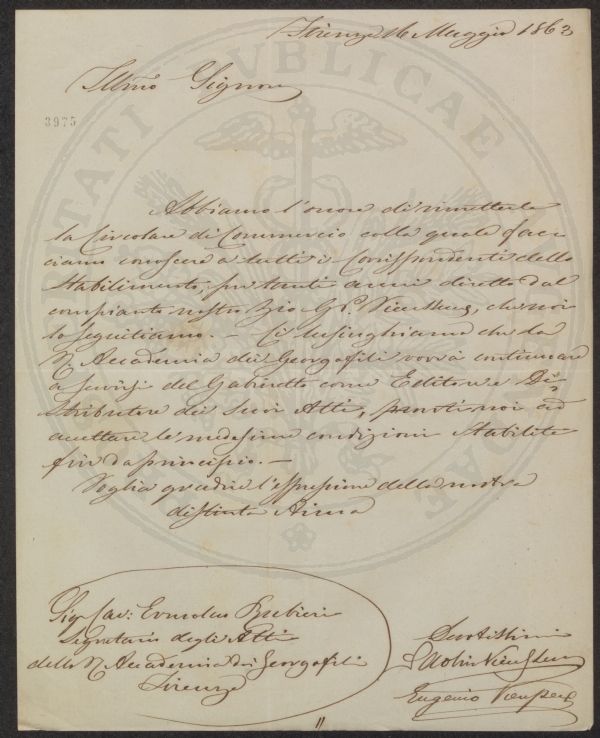 Firenze 16 Maggio 1863
Illmo Signore
3975
Abbiamo l'onore di rimetterle
la Circolare di Commercio colla quale fac-
ciamo conoscere a tutti i Corrispondenti dello
Stabilimento, per tanti anni diretto dal
compianto nostro Zio G. P. Vieusseux, che noi
lo seguitiamo. — Ci lusinghiamo che la
R. Accademia dei Georgofili vorrà continuare
a servirsi del Gabinetto come Editore e Di-
stributore dei suoi Atti, pronti noi ad
accettare le medesime condizioni stabilite
fin da principio. —
Voglia gradire l'espressione della nostra
distinta stima
Sig. Cav: Rubieri
Segretario degli Atti
della R. Accademia dei Georgofili
Firenze
Devotissimi
Vieusseux
Eugenio Vieusseux
PUBLICAE